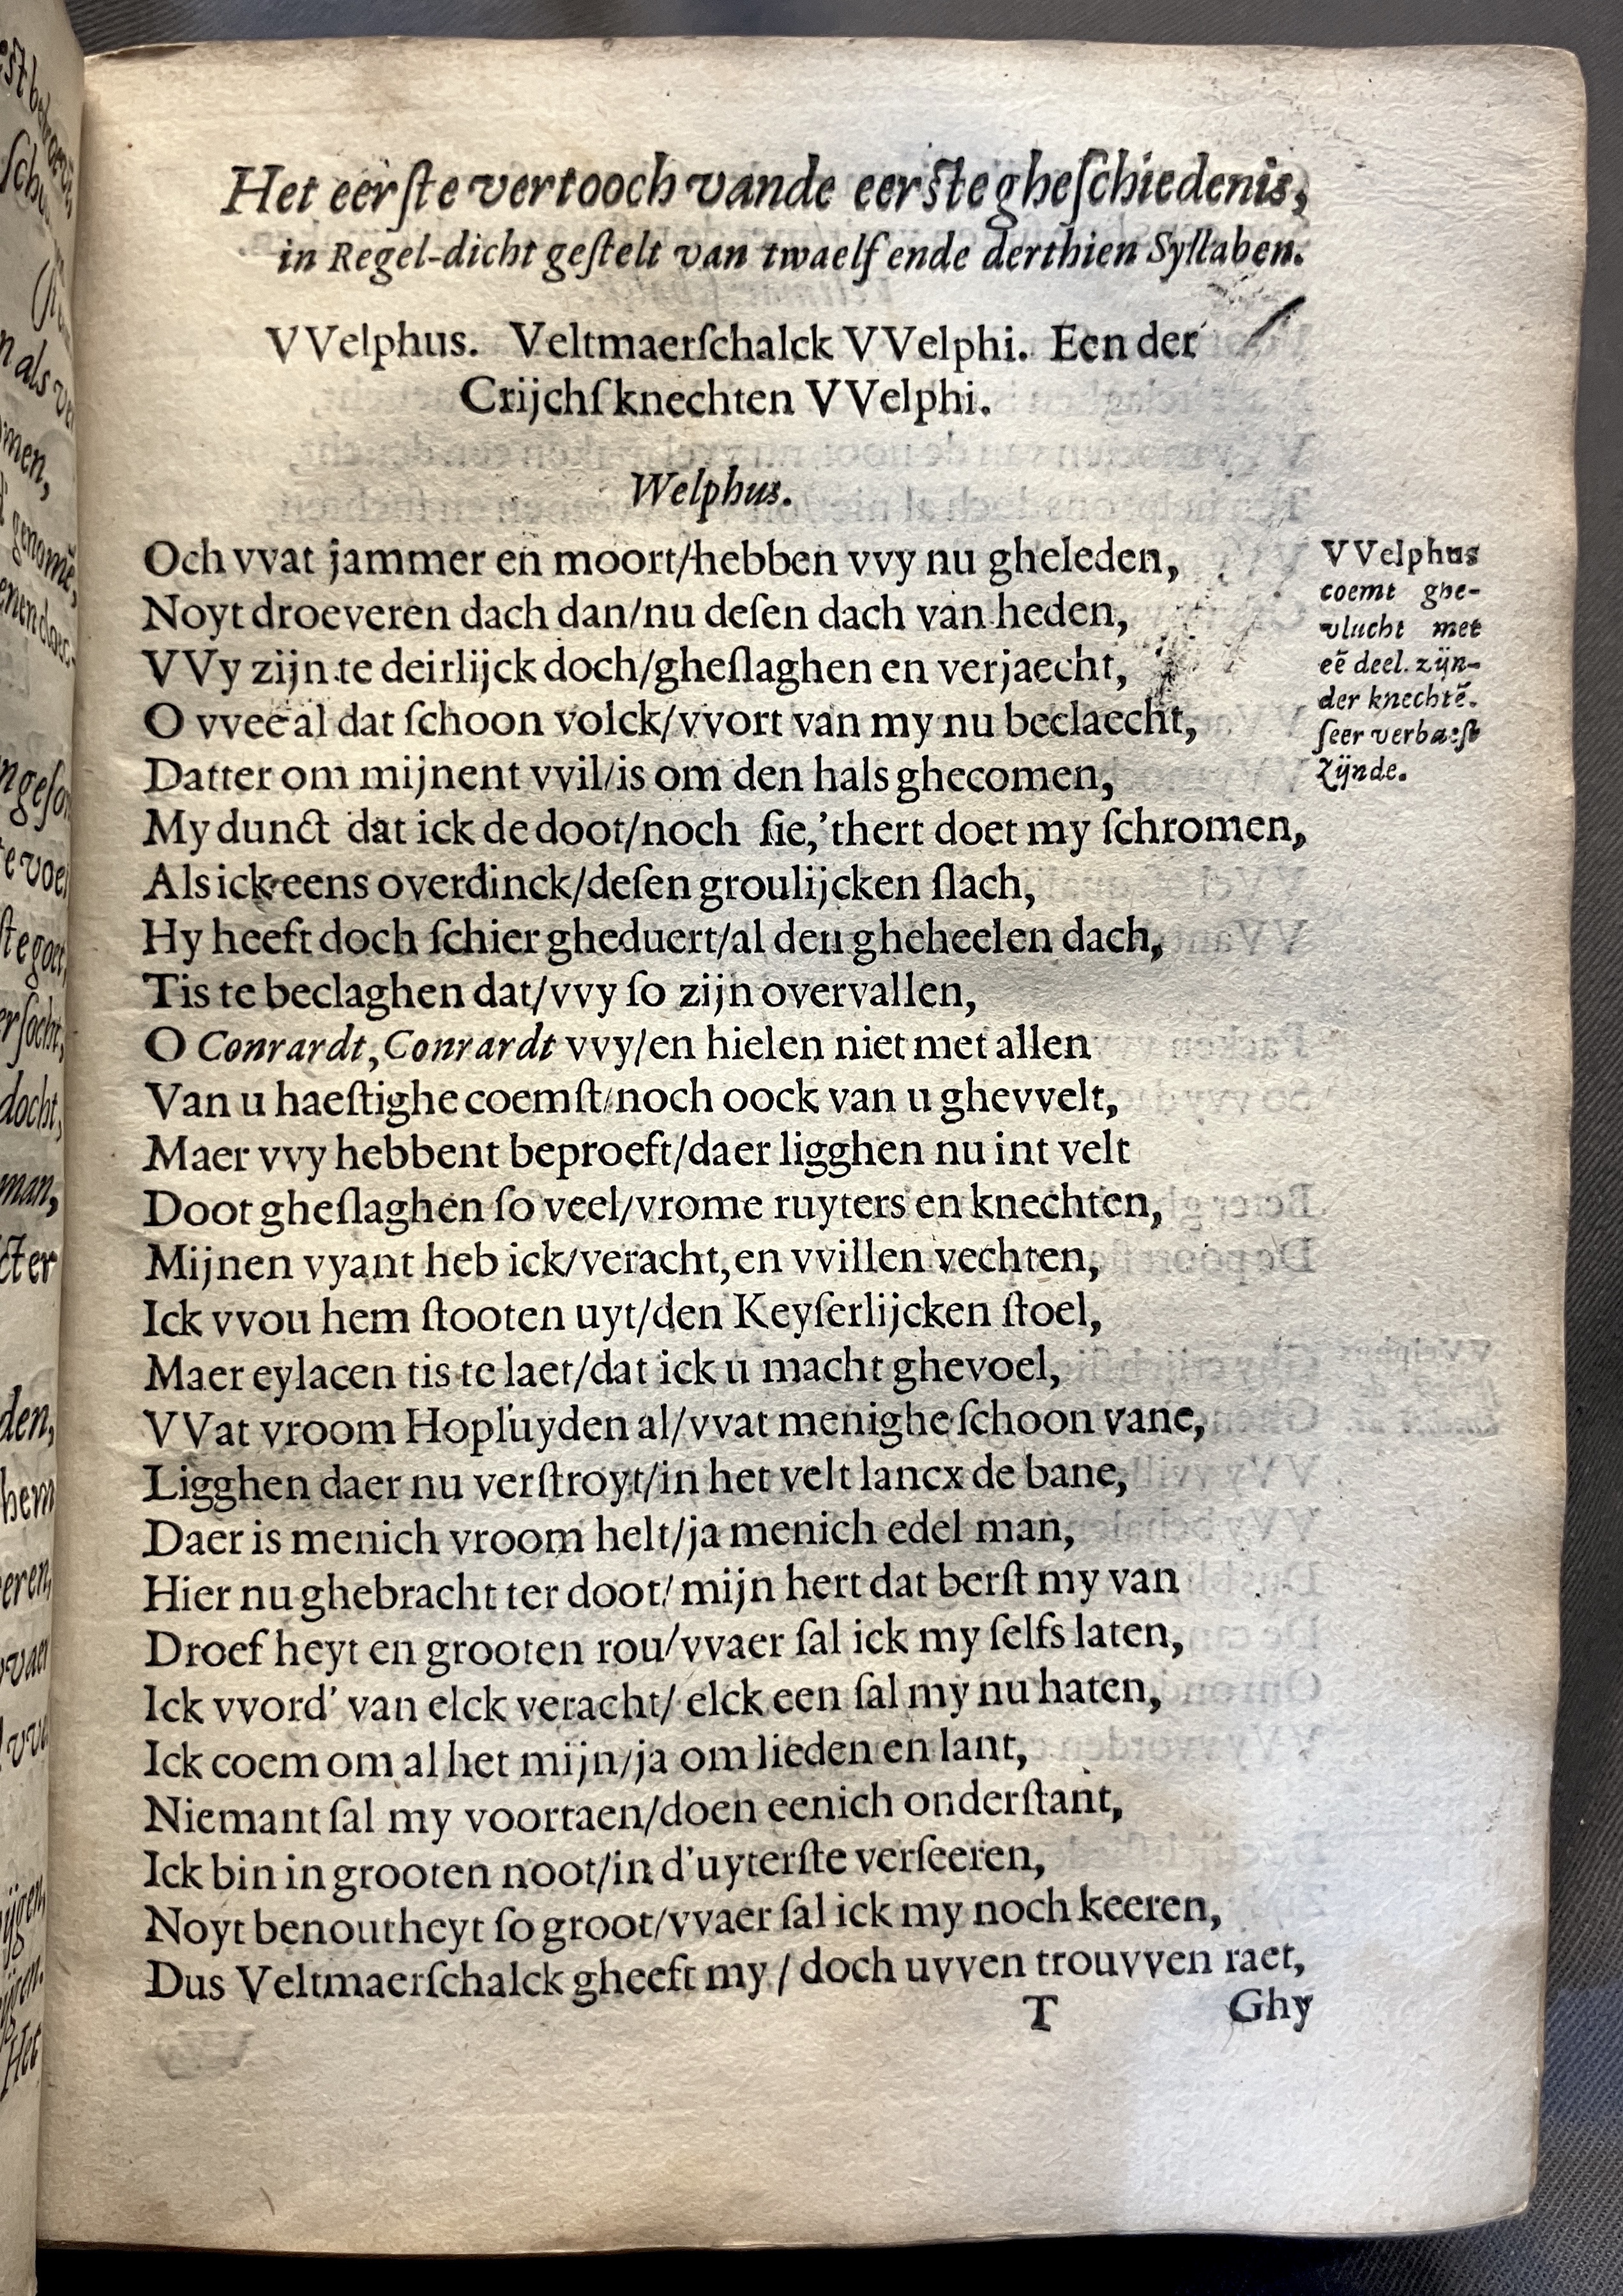 Het eerſte vertooch vande eerſte gheſchiedenis,
in Regel-dicht geſtelt van twaelf ende derthien Syllaben.
VVelphus. Veltmaerſchalck VVelphi. Een der
Crijchſknechten VVelphi.
Welphus.
Och vvat jammer en moort/hebben vvy nu gheleden,
Noyt droeveren dach dan/nu deſen dach van heden,
VVy zijn te deirlijck doch/gheſlaghen en verjaecht,
O vvee al dat ſchoon volck/vvort van my nu beclaecht,
Datter om mijnent vvil/is om den hals ghecomen,
My dunct dat ick de doot/noch ſie,'thert doet my ſchromen,
Als ick eens overdinck/deſen groulijcken ſlach,
Hy heeft doch ſchier gheduert/al den gheheelen dach,
Tis te beclaghen dat/vvy ſo zijn overvallen,
O Conrardt, Conrardt vvy/en hielen niet met allen
Van u haeſtighe coemſt/noch oock van u ghevvelt,
Maer vvy hebbent beproeft/daer ligghen nu int velt
Doot gheſlaghen ſo veel/vrome ruyters en knechten,
Mijnen vyant heb ick/veracht, en vvillen vechten,
Ick vvou hem ſtooten uyt/den Keyſerlijcken ſtoel,
Maer eylacen tis te laet/dat ick u macht ghevoel,
VVat vroom Hopluyden al/vvat menighe ſchoon vane,
Ligghen daer nu verſtroyt/in het velt lancx de bane,
Daer is menich vroom helt/ja menich edel man,
Hier nu ghebracht ter doot/mijn hert dat berſt my van
Droef heyt en grooten rou/vvaer ſal ick my ſelfs laten,
Ick vvord' van elck veracht/ elck een ſal my nu haten,
Ick coem om al het mijn/ja om lieden en lant,
Niemant ſal my voortaen/doen eenich onderſtant,
Ick bin in grooten noot/in d'uyterſte verſeeren,
Noyt benoutheyt ſo groot/vvaer ſal ick my noch keeren,
Dus Veltmaerſchalck gheeft my / doch uvven trouvven raet,
T Ghy
VVelphus
coemt ghe-
vlucht met
eẽ deel. zijn-
der knechtẽ.
ſeer verbaeſt
zijnde.